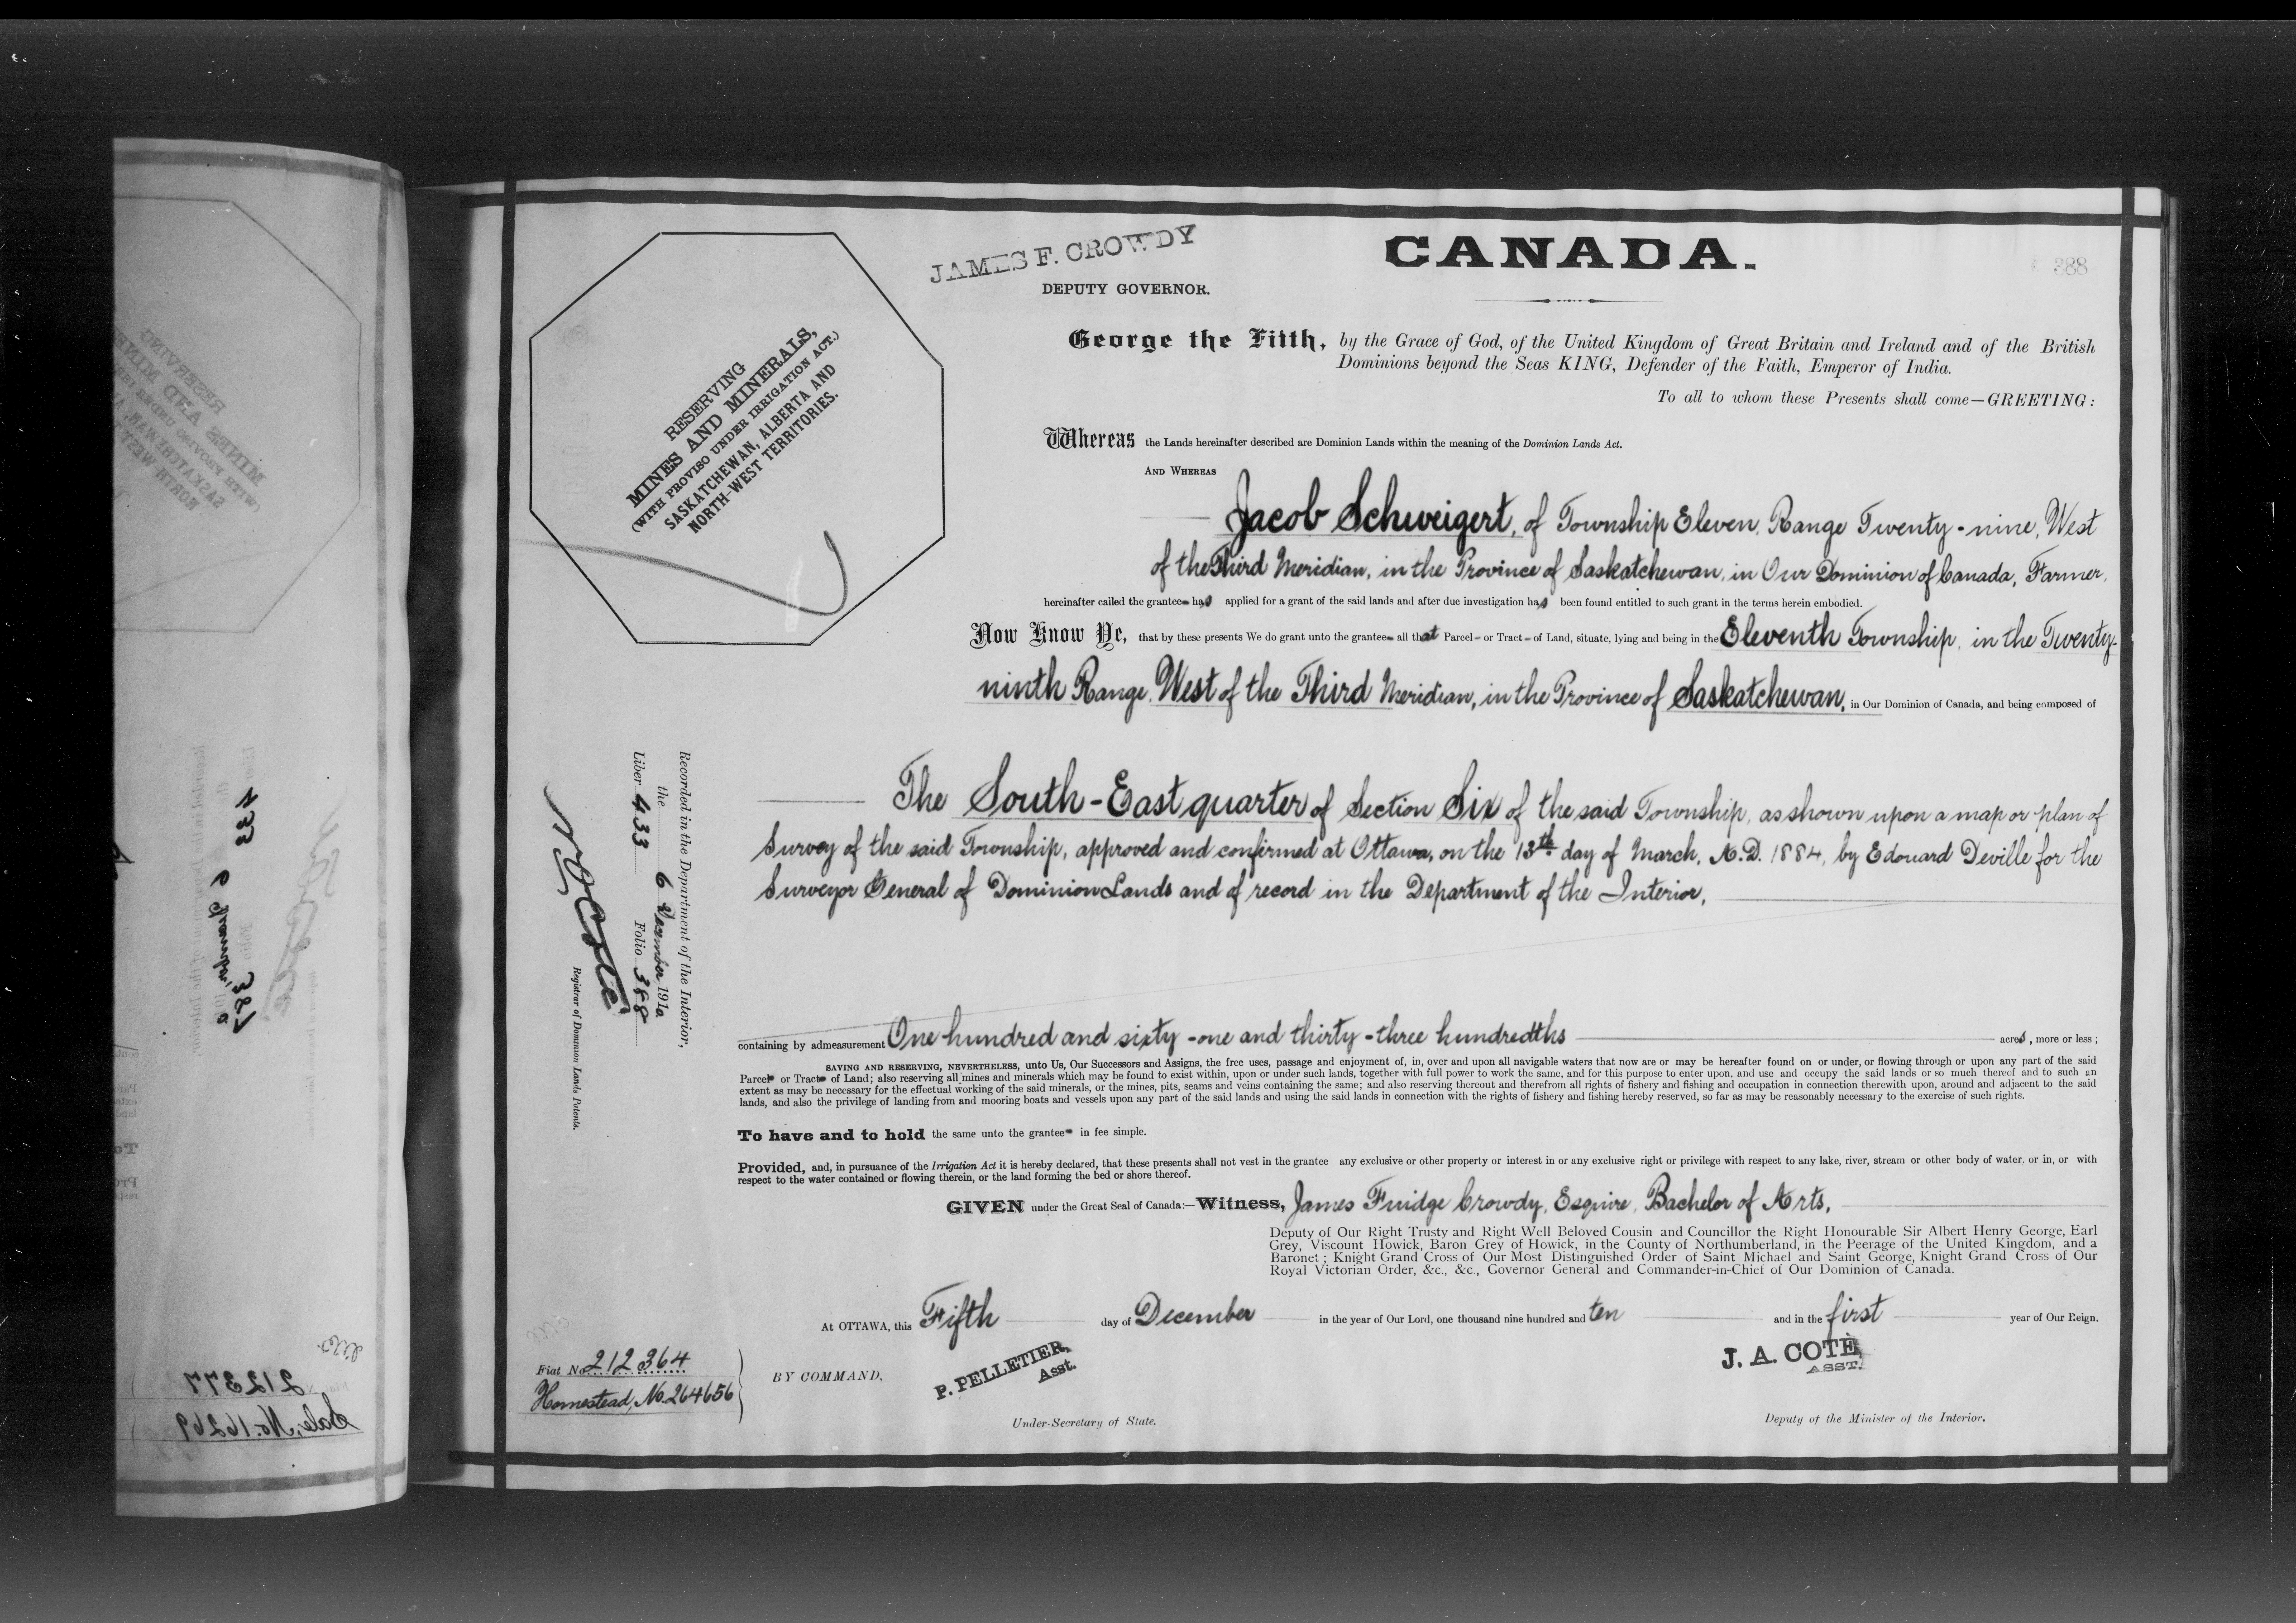 JAMES F. CROWDY
DEPUTY GOVERNOR.
CANADA.
388
RESERVING
MINES AND MINERALS,
(WITH PROVISO UNDER IRRIGATION ACT.)
SASKATCHEWAN, ALBERTA AND
NORTH-WEST TERRITORIES.
George the Fifth, by the Grace of God, of the United Kingdom of Great Britain and Ireland and of the British
Dominions beyond the Seas KING, Defender of the Faith, Emperor of India.
To all to whom these Presents shall come—GREETING:
Whereas the Lands hereinafter described are Dominion Lands within the meaning of the Dominion Lands Act.
AND WHEREAS
Jacob Schweigert, of Township Eleven, Range Twenty-nine, West
of the Third Meridian, in the Province of Saskatchewan, in Our Dominion of Canada, Farmer,
hereinafter called the grantee has applied for a grant of the said lands and after due investigation has been found entitled to such grant in the terms herein embodied.
Now Know Ye, that by these presents We do grant unto the grantee all that Parcel or Tract of Land, situate, lying and being in the Eleventh Township, in the Twenty-
ninth Range, West of the Third Meridian, in the Province of Saskatchewan, in Our Dominion of Canada, and being composed of
The South-East quarter of Section Six of the said Township, as shown upon a map or plan of
Survey of the said Township, approved and confirmed at Ottawa, on the 13th day of March, A.D. 1884, by Edouard Deville for the
Surveyor General of Dominion Lands and of record in the Department of the Interior,
containing by admeasurement One hundred and sixty-one and thirty-three hundredths acres, more or less;
SAVING AND RESERVING, NEVERTHELESS, unto Us, Our Successors and Assigns, the free uses, passage and enjoyment of, in, over and upon all navigable waters that now are or may be hereafter found on or under, or flowing through or upon any part of the said
Parcel or Tract of Land; also reserving all mines and minerals which may be found to exist within, upon or under such lands, together with full power to work the same, and for this purpose to enter upon, and use and occupy the said lands or so much thereof and to such an
extent as may be necessary for the effectual working of the said minerals, or the mines, pits, seams and veins containing the same; and also reserving thereout and therefrom all rights of fishery and fishing and occupation in connection therewith upon, around and adjacent to the said
lands, and also the privilege of landing from and mooring boats and vessels upon any part of the said lands and using the said lands in connection with the rights of fishery and fishing hereby reserved, so far as may be reasonably necessary to the exercise of such rights.
To have and to hold the same unto the grantee in fee simple.
Provided, and, in pursuance of the Irrigation Act it is hereby declared, that these presents shall not vest in the grantee any exclusive or other property or interest in or any exclusive right or privilege with respect to any lake, river, stream or other body of water, or in, or with
respect to the water contained or flowing therein, or the land forming the bed or shore thereof.
GIVEN under the Great Seal of Canada:—Witness, James Fuidge Crowdy, Esquire, Bachelor of Arts,
Deputy of Our Right Trusty and Right Well Beloved Cousin and Councillor the Right Honourable Sir Albert Henry George, Earl
Grey, Viscount Howick, Baron Grey of Howick, in the County of Northumberland, in the Peerage of the United Kingdom, and a
Baronet; Knight Grand Cross of Our Most Distinguished Order of Saint Michael and Saint George, Knight Grand Cross of Our
Royal Victorian Order, &c., &c., Governor General and Commander-in-Chief of Our Dominion of Canada.
At OTTAWA, this Fifth day of December in the year of Our Lord, one thousand nine hundred and ten and in the first year of Our Reign.
BY COMMAND,
P. PELLETIER,
Asst.
Under-Secretary of State.
J. A. COTE,
ASST.
Deputy of the Minister of the Interior.
Fiat No. 212364
Homestead, No. 264656
Recorded in the Department of the Interior,
the 6 December 1910
Liber 433 Folio 388
N. O. Coté
Registrar of Dominion Lands Patents.
433
387
212377
Sale, No. 16269